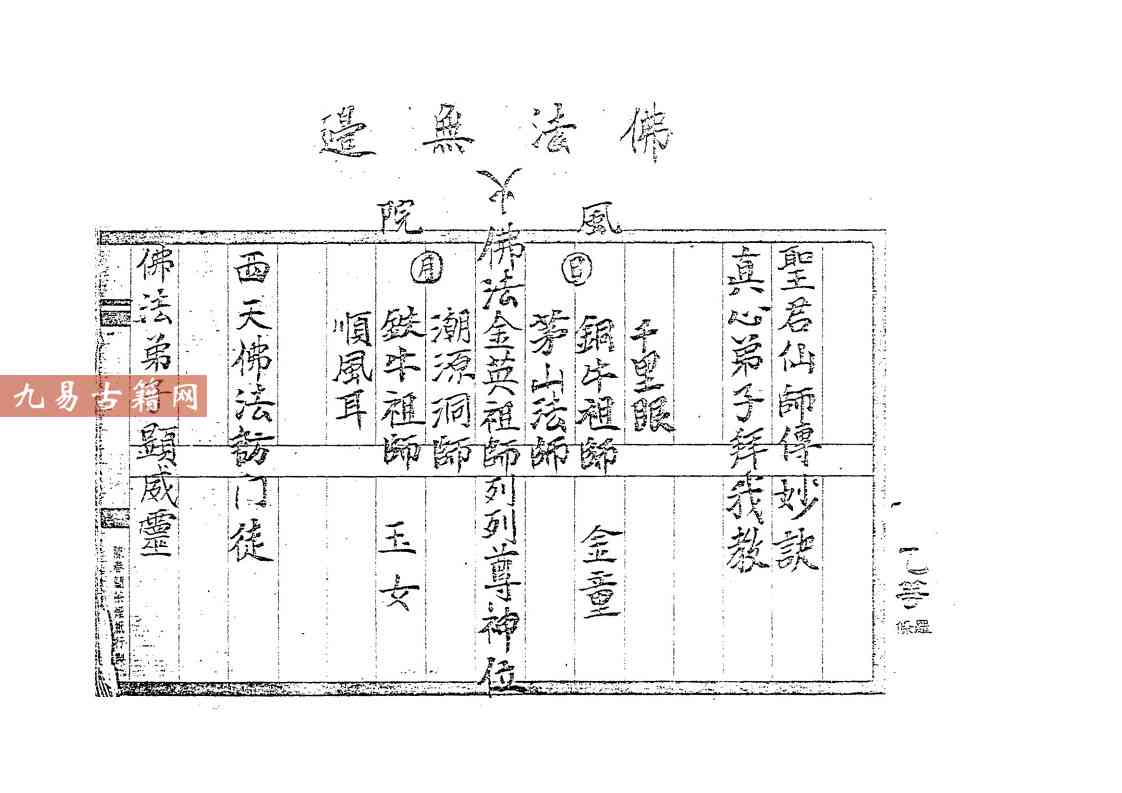 佛法無邊
風院
聖君仙師傳妙訣
真心弟子拜我教
千里眼
銅牛祖師
金童
日
茅山法師
佛法金英祖師列列尊神位
月
潮源洞師
鉄牛祖師
玉女
順風耳
西天佛法訪门徒
佛法弟子顯威靈
九易古籍网